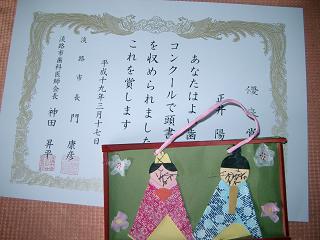 優
正井 陽
あなたはよい歯
コンクールで頭書
を収められました
これを賞します
平成十九年三月十七日
淡路市長 門 康彦
淡路市歯科医師会長 神田 昇平